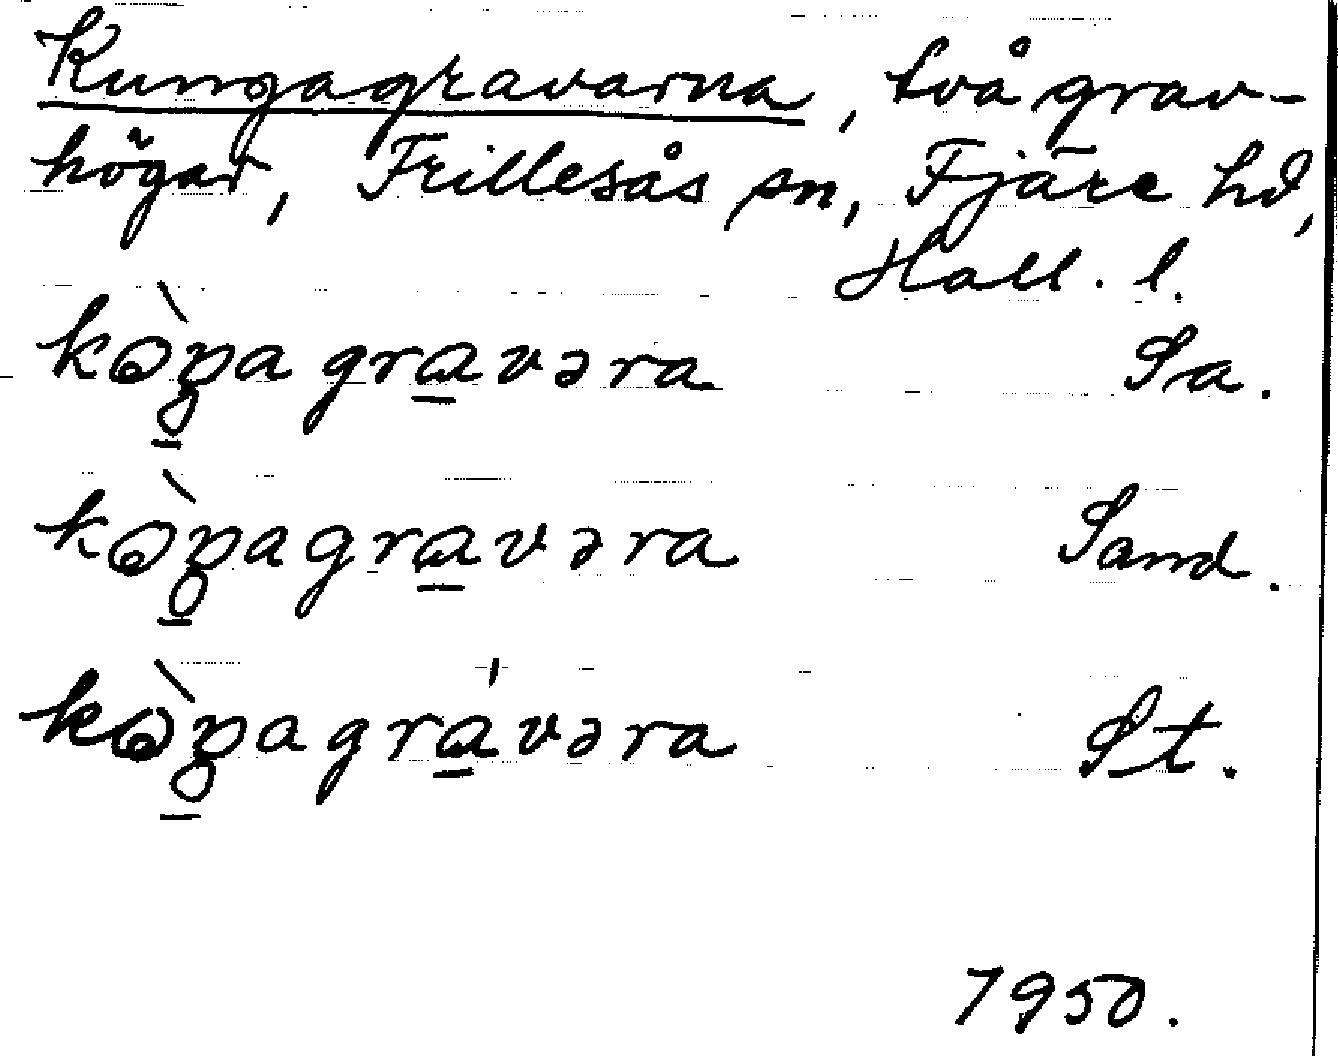 Kungagravarna, två grav-
högar, Frillesås sn, Fjäre hd,
Hall. l.
kò̱ŋa gra̱vəra Sa.
kò̱ŋagra̱vəra Sand.
kò̱ŋagra̱ˈvəra St.
1950.